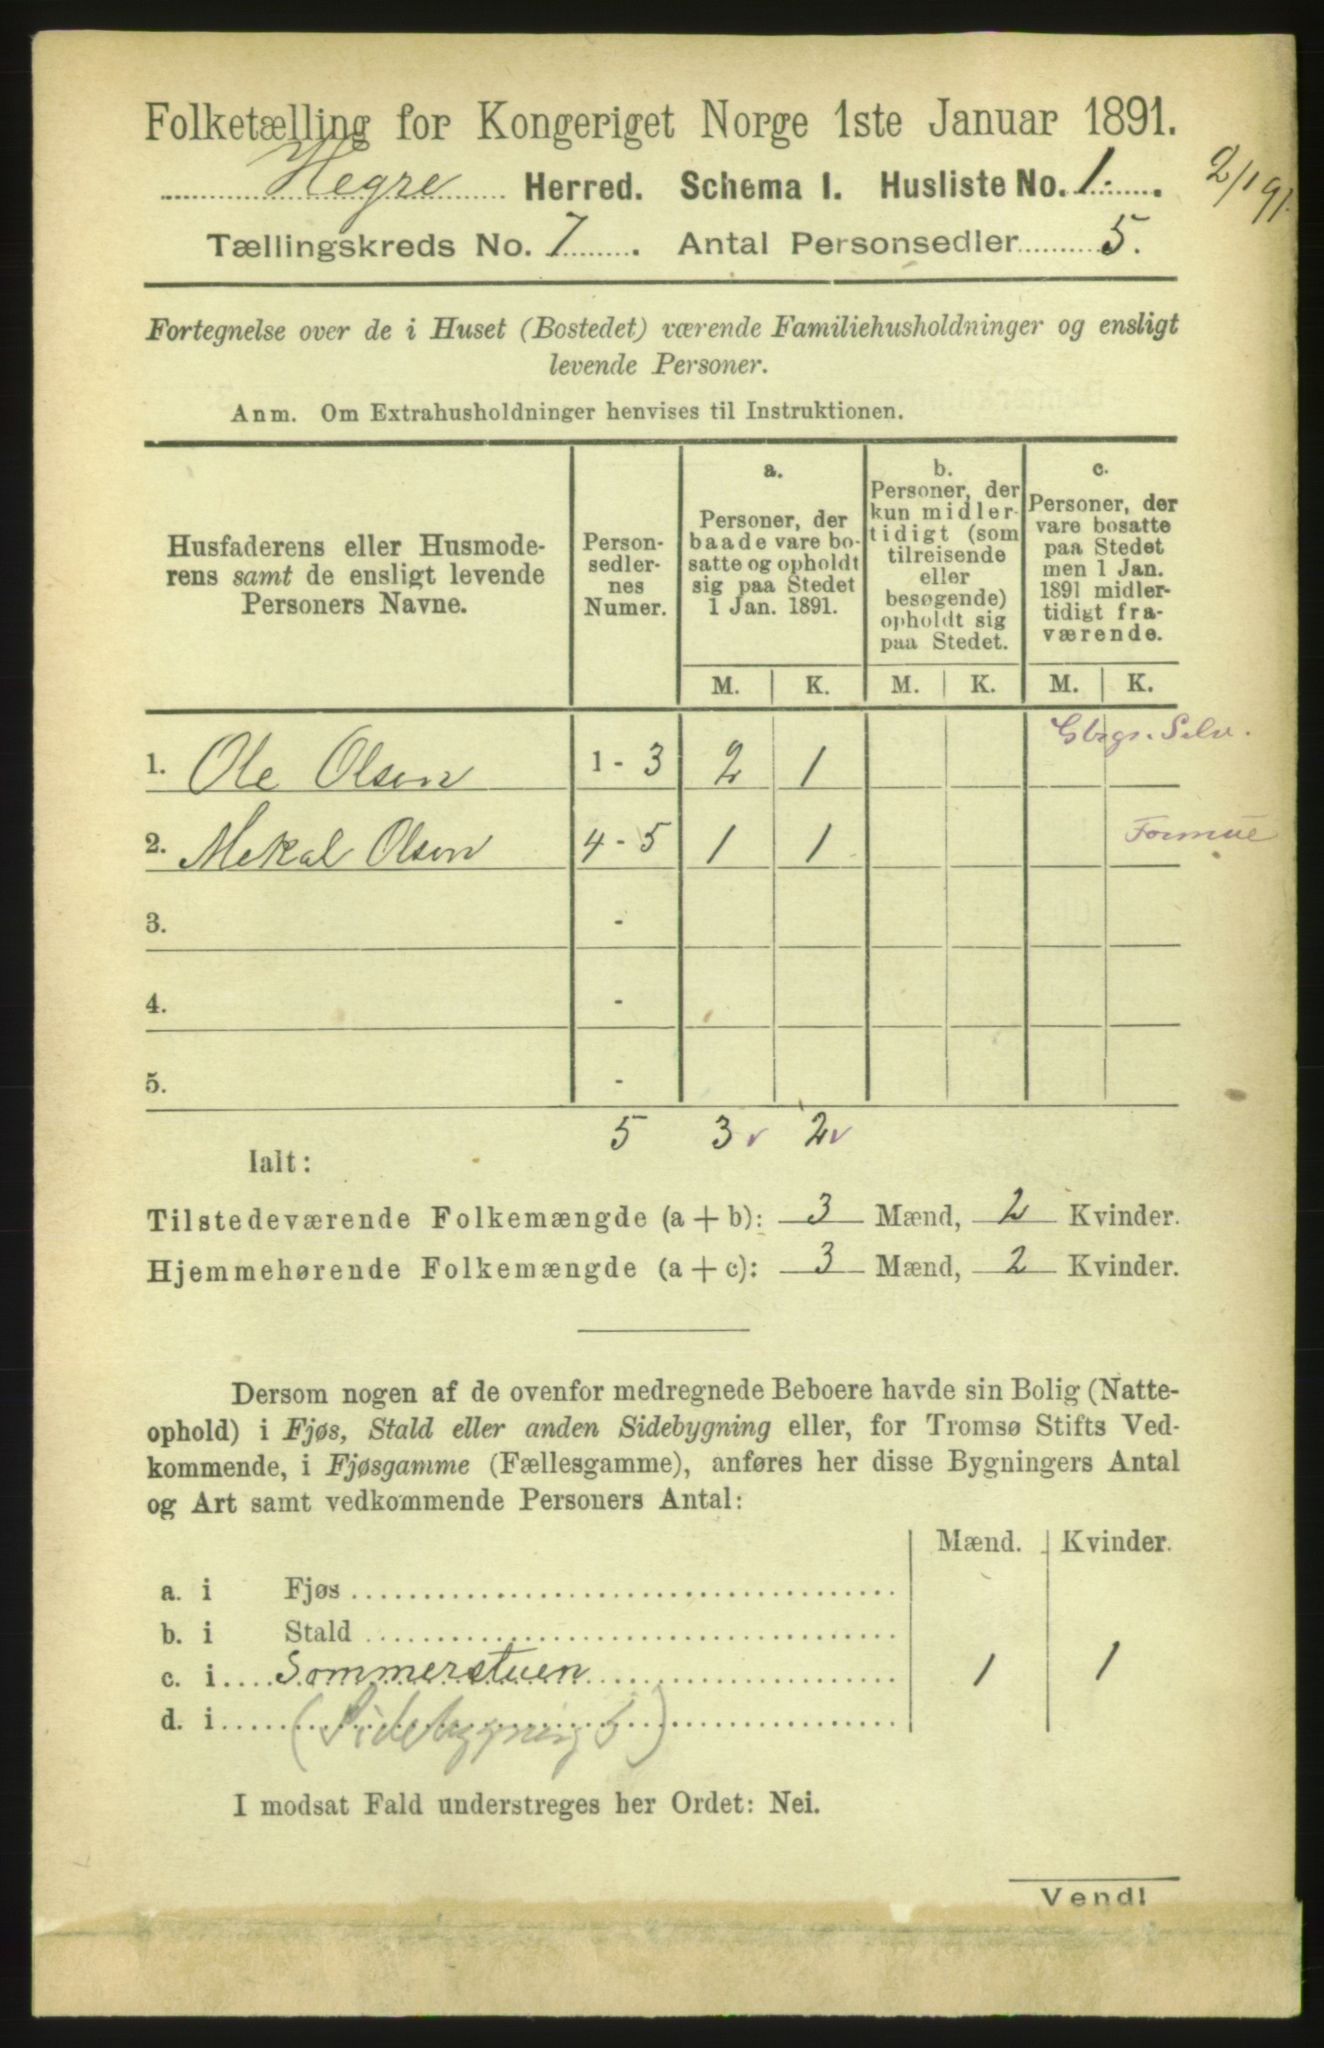 Folketælling for Kongeriget Norge 1ste Januar 1891.
Hegre Herred. Schema I. Husliste No. 1.
2/1 91.
Tællingskreds No. 7. Antal Personsedler 5.
Fortegnelse over de i Huset (Bostedet) værende Familiehusholdninger og ensligt
levende Personer.
Anm. Om Extrahusholdninger henvises til Instruktionen.
Husfaderens eller Husmode-
rens samt de ensligt levende
Personers Navne.
Person-
sedler-
nes
Numer.
a.
Personer, der
baade vare bo-
satte og opholdt
sig paa Stedet
1 Jan. 1891.
b.
Personer, der
kun midler-
tidigt (som
tilreisende
eller
besøgende)
opholdt sig
paa Stedet.
c.
Personer, der
vare bosatte
paa Stedet
men 1 Jan.
1891 midler-
tidigt fra-
værende.
M. K. M. K. M. K.
Gbgr. Selv.
1. Ole Olsen 1 - 3 2 1
2. Mekal Olsen 4 - 5 1 1 Formue
3. -
4. -
5. -
5 3 v 2 v
Ialt:
Tilstedeværende Folkemængde (a + b): 3 Mænd, 2 Kvinder.
Hjemmehørende Folkemængde (a + c): 3 Mænd, 2 Kvinder.
Dersom nogen af de ovenfor medregnede Beboere havde sin Bolig (Natte-
ophold) i Fjøs, Stald eller anden Sidebygning eller, for Tromsø Stifts Ved-
kommende, i Fjøsgamme (Fællesgamme), anføres her disse Bygningers Antal
og Art samt vedkommende Personers Antal:
Mænd. Kvinder.
a. i Fjøs
b. i Stald
c. i Sommerstuen 1 1
d. i (Sidebygning)
I modsat Fald understreges her Ordet: Nei.
Vend!